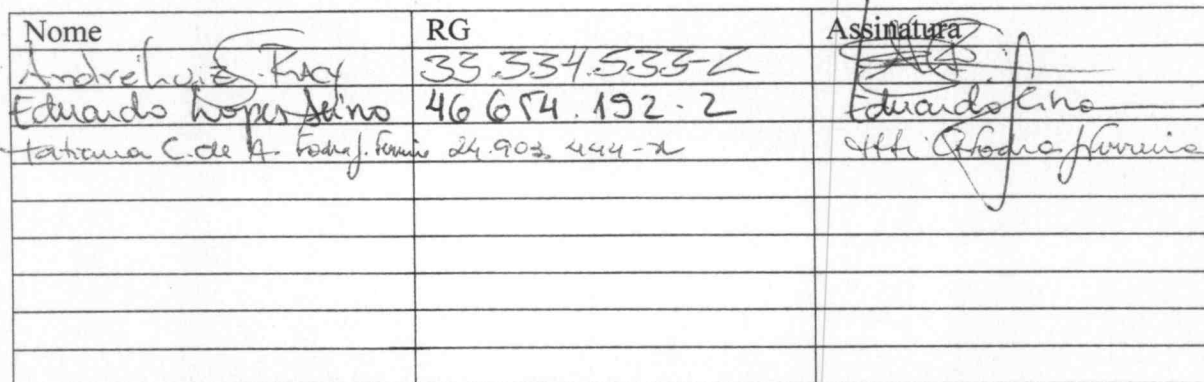 Nome RG Assinatura
André Luiz Racy 33.334.533-2
Eduardo Lopes Lino 46 654.192-2 Eduardo Lino
Tatiana C. de A. 24.903 444-x Ferreira